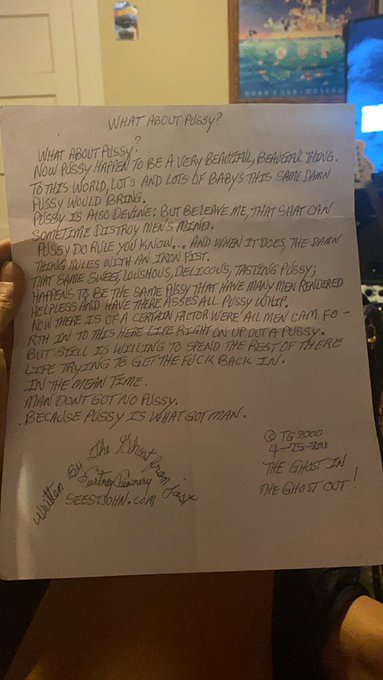 WHAT ABOUT PUSSY?
WHAT ABOUT PUSSY?
NOW PUSSY HAPPEN TO BE A VERY BEAUTIFUL, BEAUTIFUL THING.
TO THIS WORLD, LOT'S AND LOTS OF BABYS THIS SAME DAMN
PUSSY WOULD BRING.
PUSSY IS ALSO DEVINE: BUT BELEAVE ME, THAT SHAT CAN
SOMETIME DISTROY MEN'S MIND.
PUSSY DO RULE YOU KNOW... AND WHEN IT DOES, THE DAMN
THING RULES WITH AN IRON FIST.
THAT SAME SWEET, LOUSHOUS, DELICOUS, TASTING PUSSY;
HAPPENS TO BE THE SAME PUSY THAT HAVE MANY MEN RENDERED
HELPLESS AND HAVE THERE ASSES ALL PUSSY WHIP.
NOW THERE IS OF A CERTAIN FACTOR WERE ALL MEN CAM FO-
RTH IN TO THIS HERE LIFE RIGHT ON UP OUT A PUSSY.
BUT STILL IS WILLING TO SPEND THE REST OF THERE
LIFE TRYING TO GET THE FUCK BACK IN.
IN THE MEAN TIME.
MAN DONT GOT NO PUSSY.
BECAUSE PUSSY IS WHAT GOT MAN.
Written By The Ghost from
SEESTJOHN.COM
© TG2000
THE GHOST IN
THE GHOST OUT!